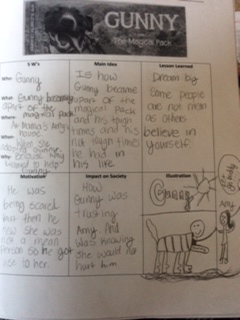 GUNNY
The Magical Pack
5 W's
Who: Gunny
What: Gunny becoming
apart of the
Where: magical pack
At Mama's Amy
house
When
adopting Gunny.
Why: because Amy
wanted to help
Gunny
Main Idea
Is how
Gunny became
apart of the
magical pack
and his tough
times and his
not tough times
he had in
his life
Lesson Learned
Dream big
Some people
are not mean
as others
believe in
yourself.
Motivation
He was
being scared
but then he
new she was
not a mean
person so he got
use to her.
Impact on Society
How
Gunny was
trusting
Amy And
was knowing
she would not
hurt him
Illustration
Gunny
Amy